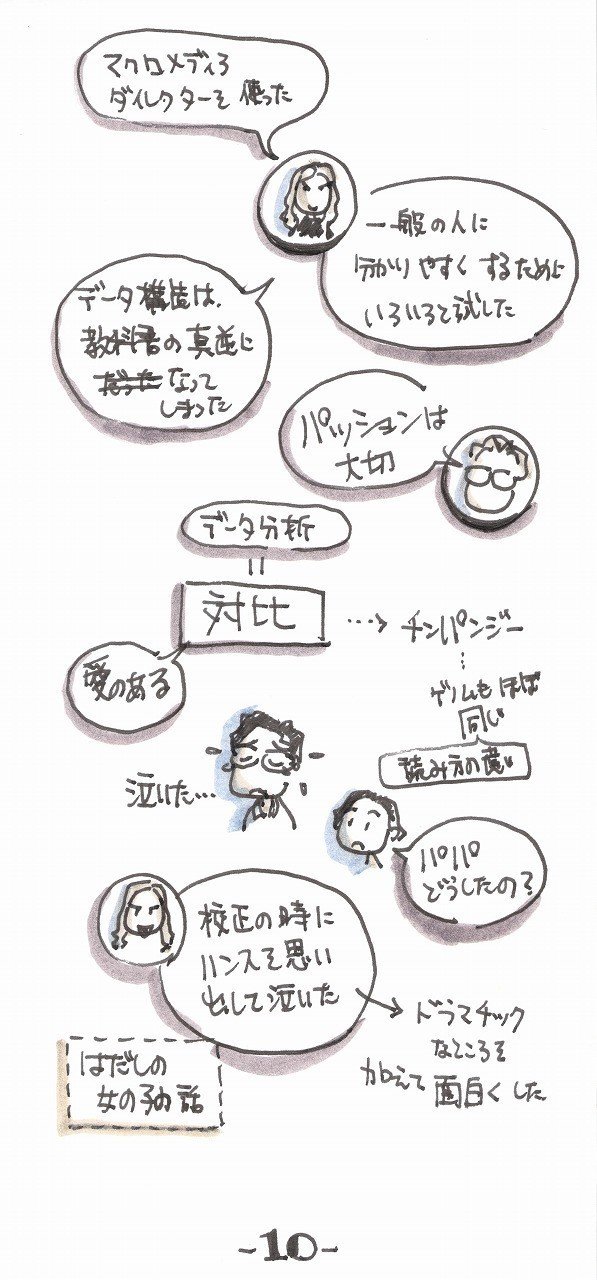 マクロメディア
ダイレクターを使った
一般の人に
分かりやすくするために
いろいろと試した
データ構造は、
教科書の真逆に
なって
しまった
パッションは
大切
データ分析
=
対比
愛のある
…→ チンパンジー
…
ゲノムもほぼ
同じ
読み方の違い
泣いた…
パパ
どうしたの?
校正の時に
ハンスを思い
出して泣いた
→ ドラマチック
なところを
加えて面白くした
はだしの
女の子の話
-10-